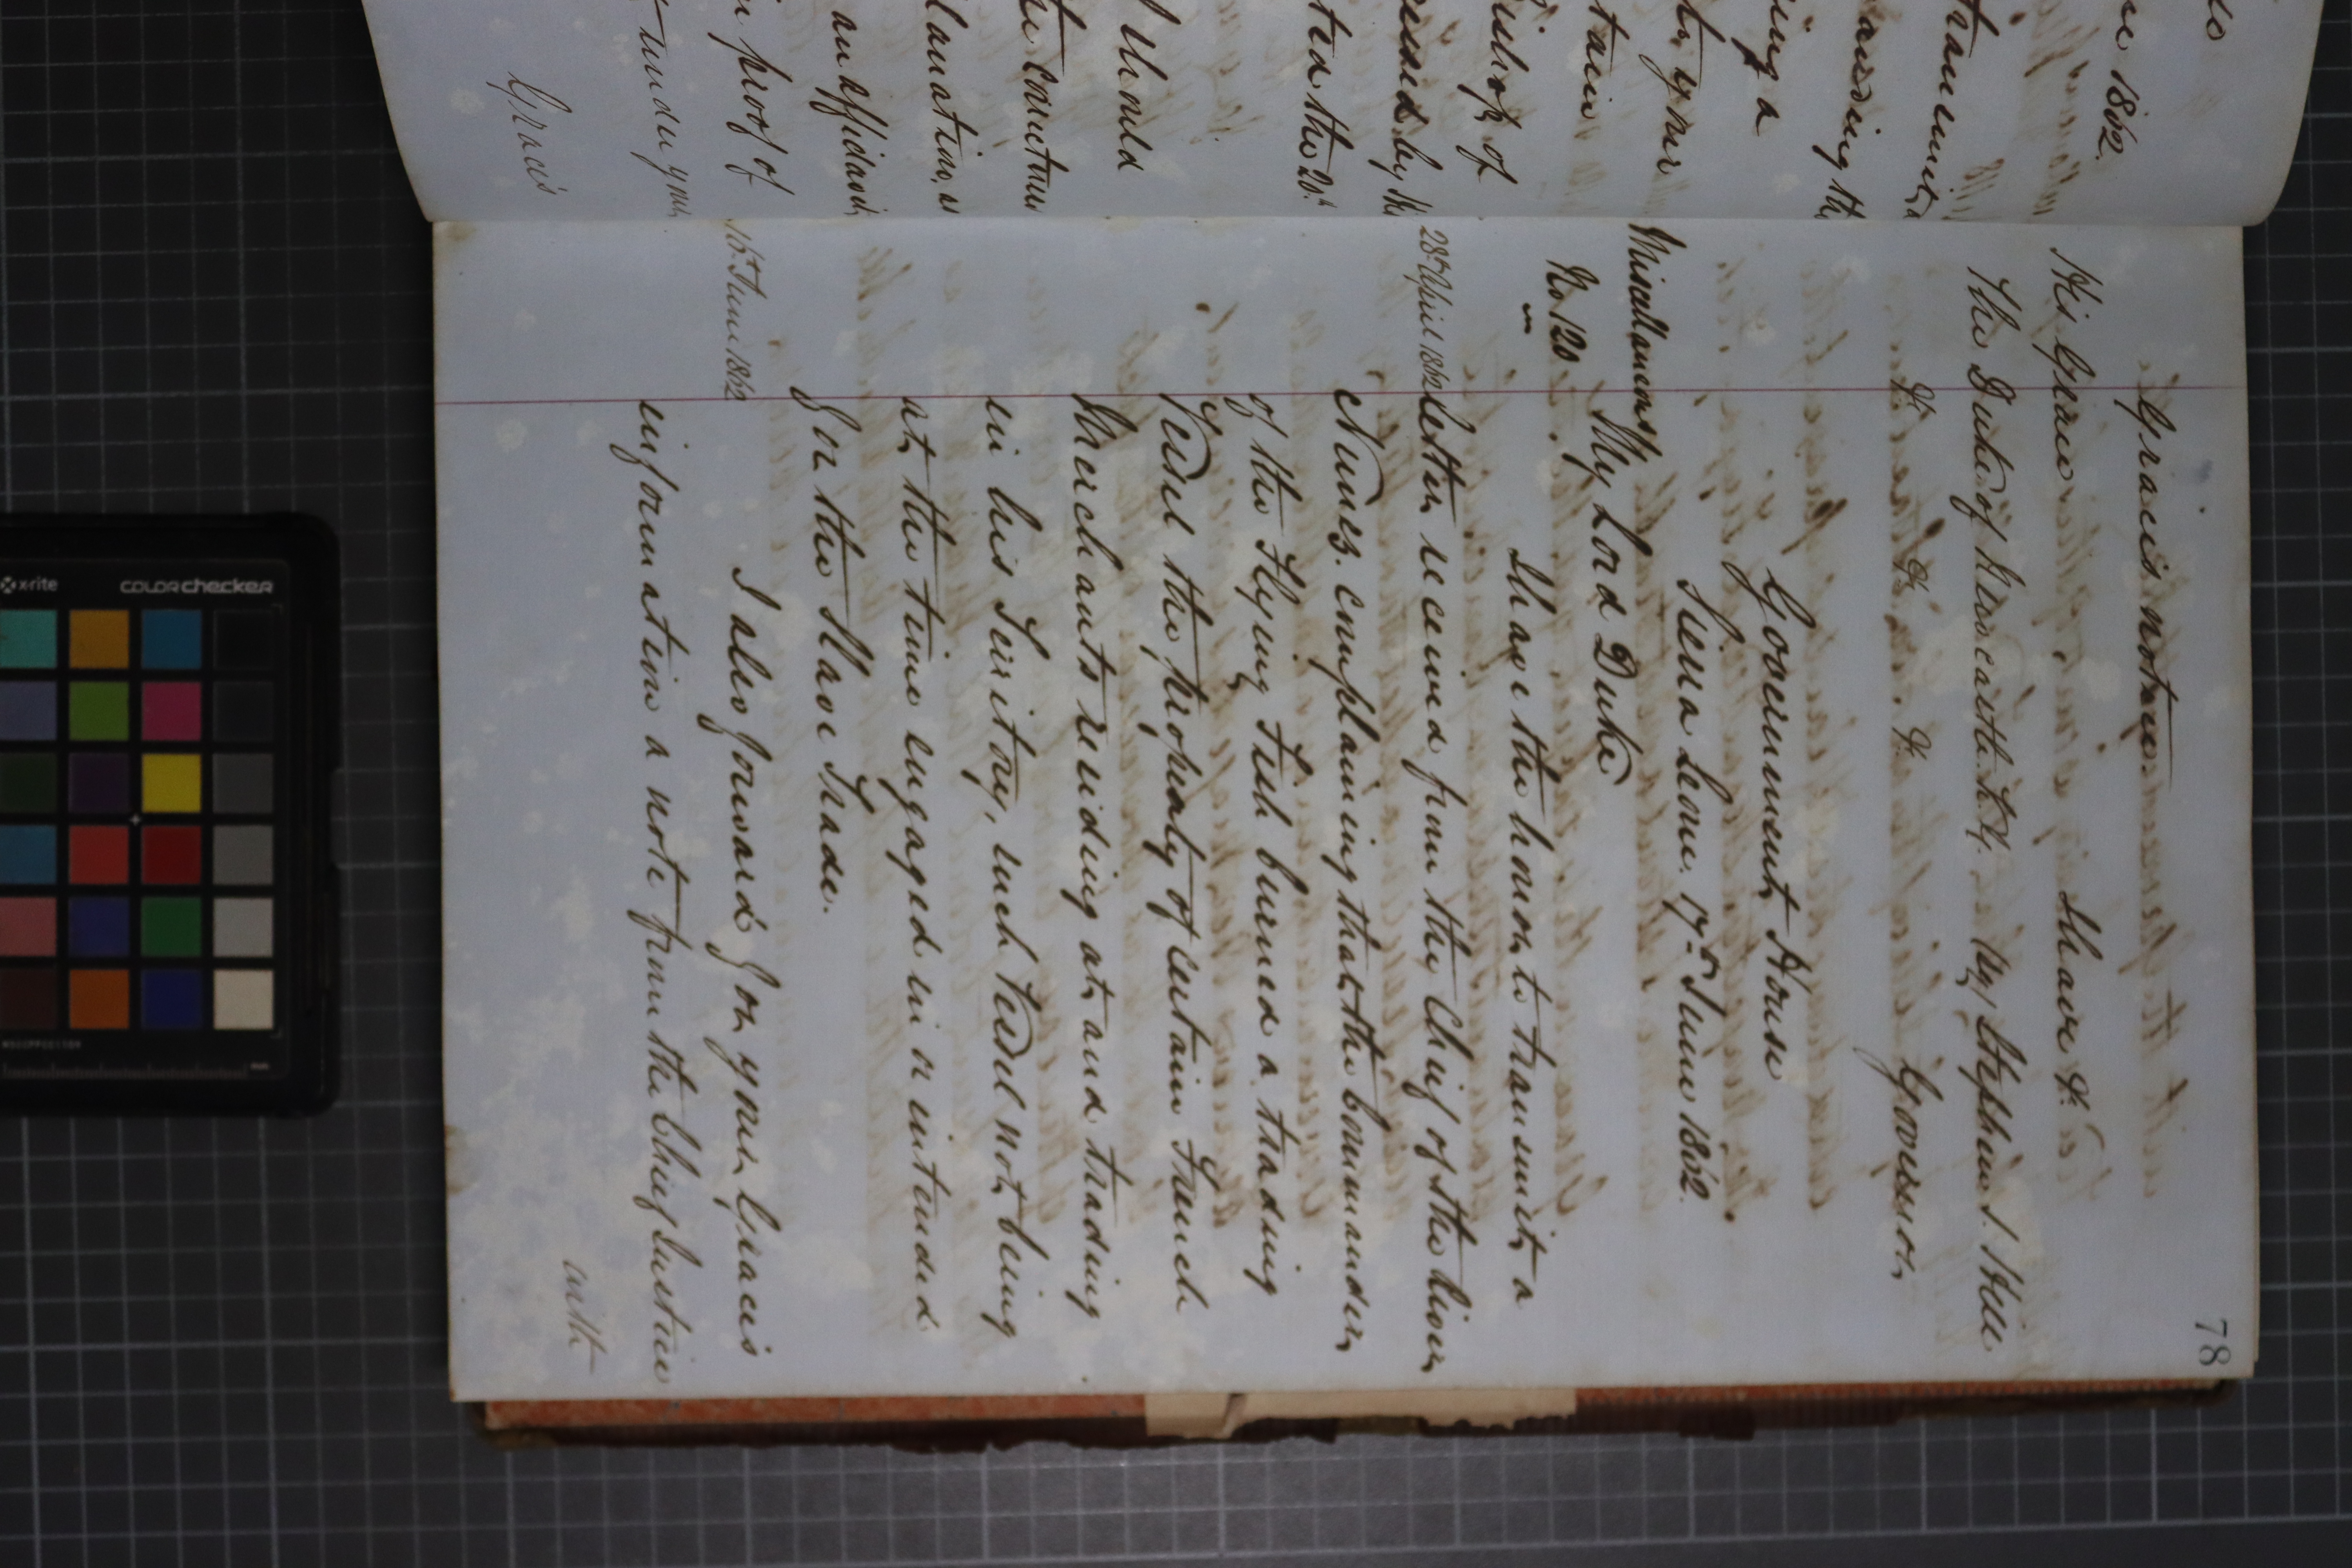 Grace's notice.
I have &c
His Grace
The Duke of Newcastle K.G. (Sg) Stephen J. Hill
&c &c &c Governor
Government House
Sierra Leone. 17th June 1862.
Miscellaneous
My Lord Duke
No 120
I have the honor to transmit a
28th April 1862
letter received from the Chief of the River
Nunez. complaining that the Commander
of the Flying Fish burned a trading
Vessel the property of certain French
Merchants residing at and trading
in his Territory, such Vessel not being
at the time engaged in or intended
for the Slave Trade.
I also forward for your Grace's
16th June 1862
information a note from the Chief Justice
with
78
re 1862.
transmit a
ing a
by your
tain
of
essed by the
ted the 20th
I should
the
an affidavit
proof of
under your
Grace's